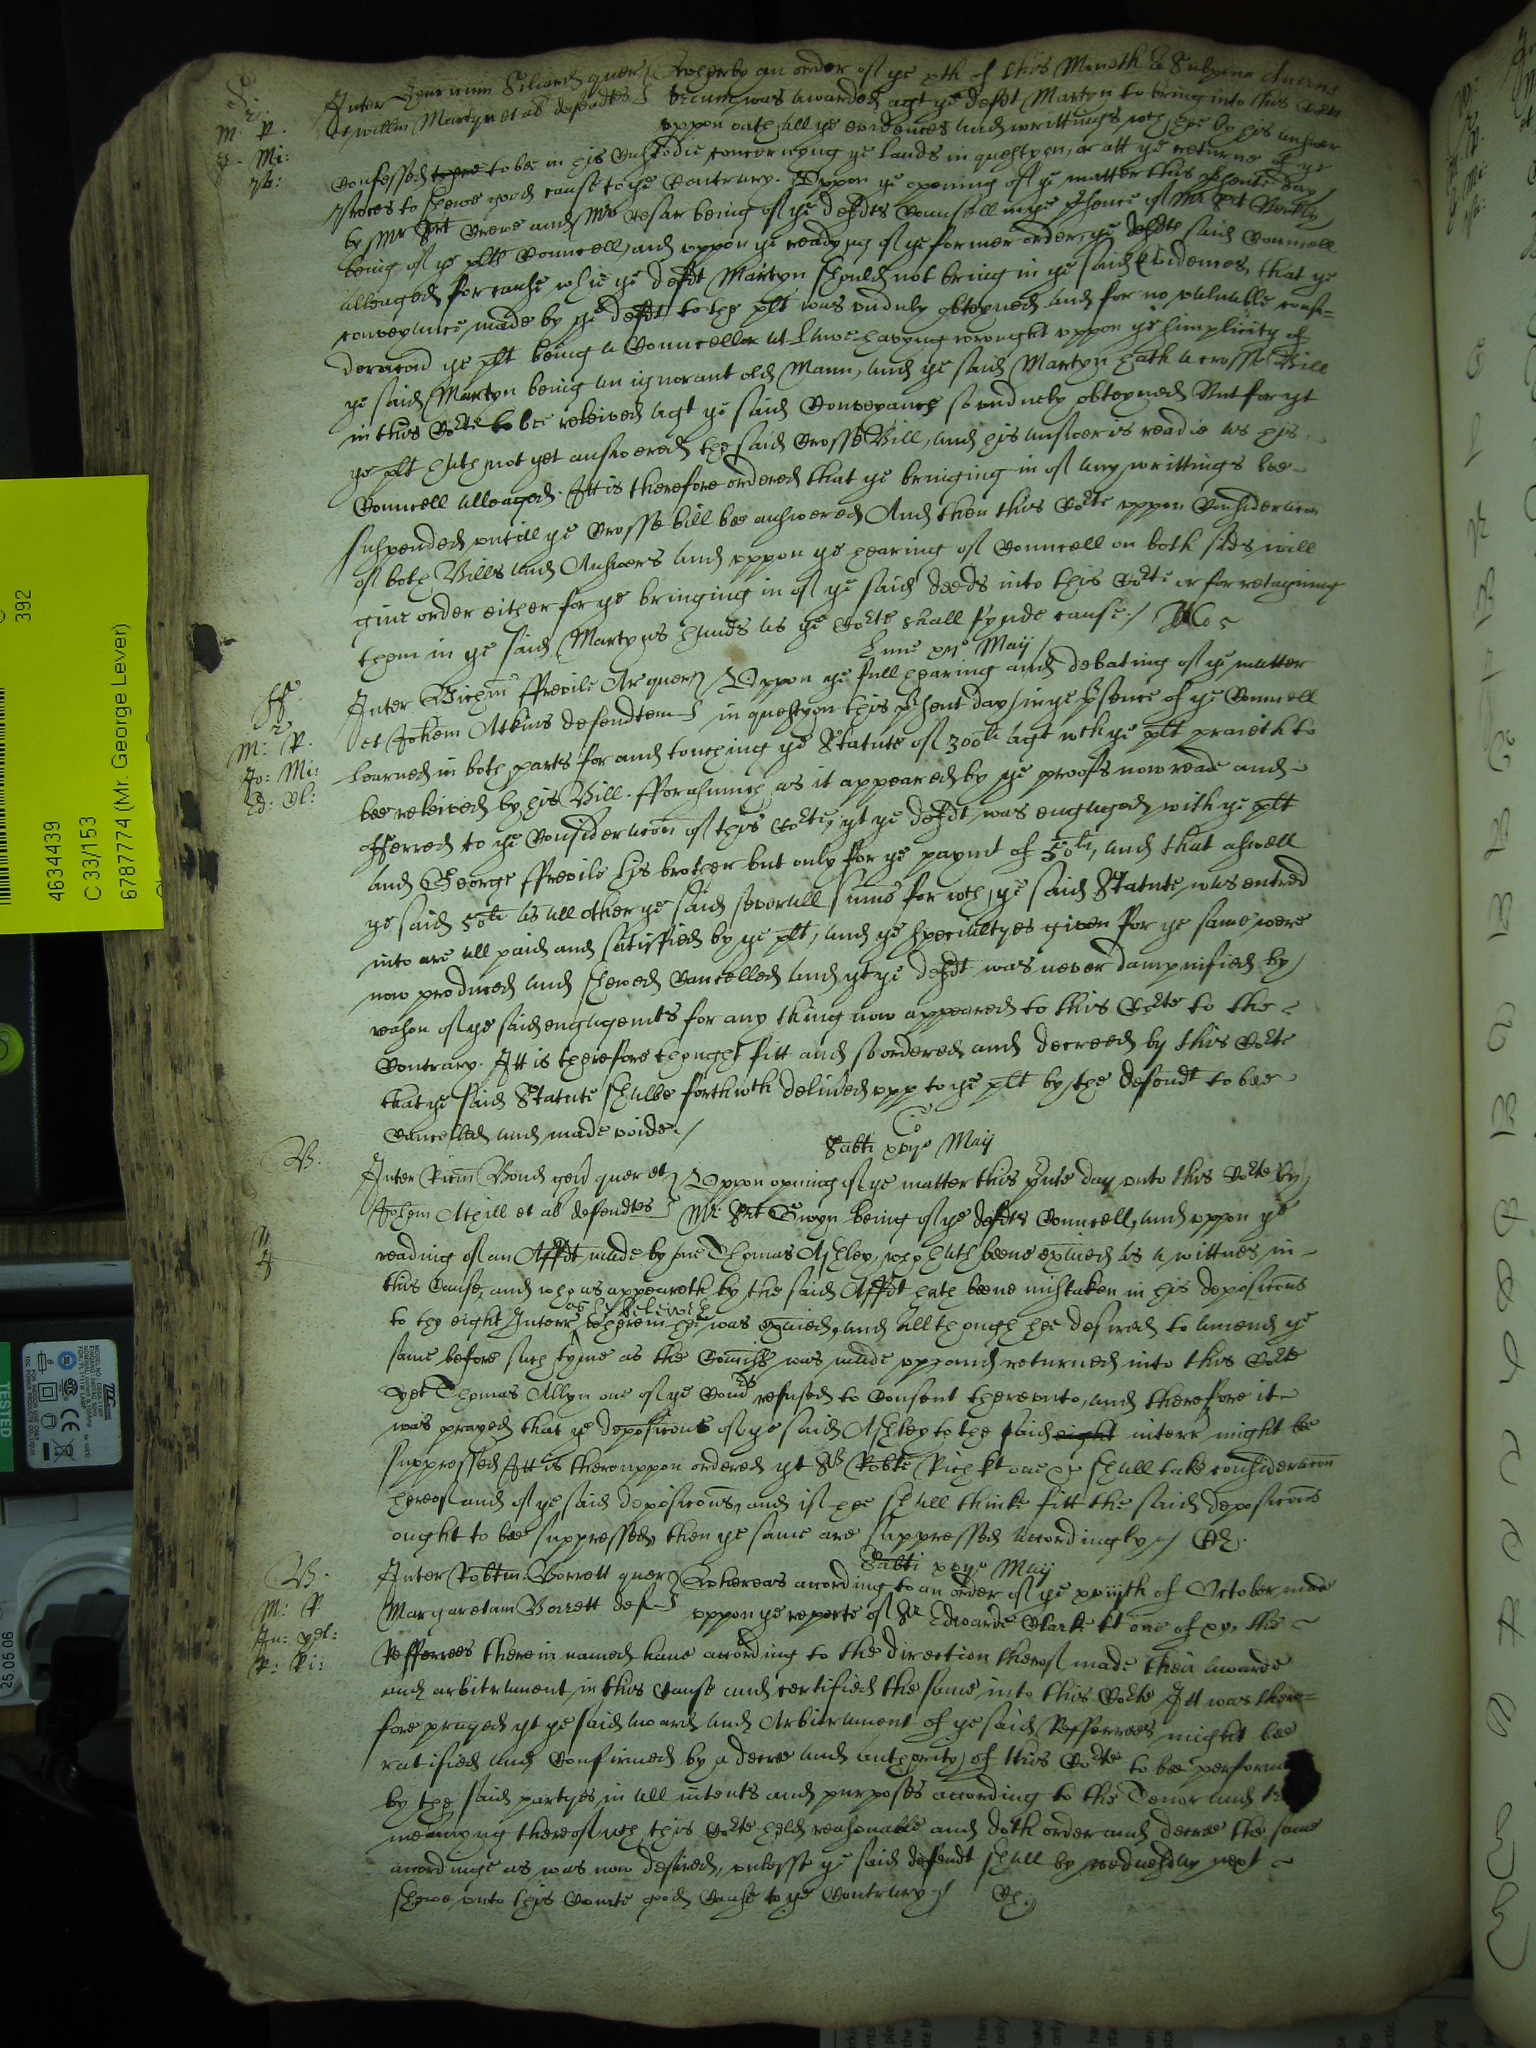 S:
r
M: P.
g. Mi:
Inter Henricum Seliard quer Whereby an order of ye xth of this Moneth a Subpena ducens
et willm Martyn et al defendtes tecum was awarded agt ye defdt Martyn to bring into this Corte
uppon oath all ye evidences and writtings wch hee by his answer
Confessed to be in his Custodie concernyng ye lands in questyon, or att ye returne of ye
proces to shewe good cause to ye Contrary. Uppon ye opening of ye matter this psente day
by Mr Srt Crewe and Mr Cesar being of ye defdts Counsell in ye psence of Mr
being of ye plts Councell, and uppon ye readyng of ye former order, ye defdts said Councell
alleaged for cause whie ye defdt Martyn should not bring in ye said Evidences, that ye
conveyance made by ye defdt to the plt was unduly obteyned and for no valuable consi=
deracon ye plt being a Councellor at Lawe havyng wrought uppon ye simplicity of
ye said Martyn being an ignorant old Mann, and ye said Martyn hath a crosse Bill
in this Corte to bee releived agt ye said Conveyance so unduely obteyned But for yt
ye plt hath not yet answered the said Crosse Bill, and his answer is readie as his
Councell alleaged. Itt is therefore ordered that ye bringing in of any writtings bee
suspended untill ye Crosse bill bee answered And then this Corte uppon Consideracon
of both Bills and Answers and uppon ye hearing of Councell on both sids will
give order either for ye bringing in of ye said deeds into this Corte or for retayning
them in ye said Martyns hands as ye Corte shall fynde cause./
Lune May
ff.
r
M: P.
Jo: Mi:
Ed:
Inter Gichm ffrevile Ar quer Uppon ye full hearing and debating of ye matter
et Johem Atkins defendtem in questyon this psent day in ye psence of ye Councell
Learned in both parts for and touching ye Statute of 300li agt wch ye plt praieth to
bee releived by his Bill. fforasmuch as it appeared by ye proofs now reade and
offerred to ye Consideracon of this Corte, yt ye defdt was engaged with ye plt
and George ffrevile his brother but only for ye paymt of 50li, and that aswell
ye said 50li as all other ye said severall sums for wch ye said Statute was entred
into are all paid and satisfied by ye plt, and ye specialtyes given for ye same were
now produced and shewed Cancelled and yt ye defdt was never dampnified by
reason of ye said engagemts for any thing now appeared to this Corte to the
Contrary. Itt is therefore thought fitt and so ordered and decreed by this Corte
that ye said Statute shalbe forthwth delived upp to ye plt by the defendt to bee
Cancelled and made voide./
Sabti xvijo Maij
B.
Inter Ricm Bond gen quer et Uppon opening of ye matter this psnte day unto this Corte by
Johem Athill et al defendtes Mr Srt Gwyn being of ye defdts Councell, and uppon ye
reading of an Affdt made by one Thomas Ashley, who hath beene exaied as a wittnes in
this Cause, and who as appeareth by the said Affdt hath beene mistaken in his deposicons
as hee beleiveth
to the eight Interr wherein hee was exaied, and allthough hee desired to amend ye
same before such tyme as the Comiss was made upp and returned into this Corte
yet Thomas Allyn one of ye Comrs refused to Consent thereunto, and therefore it
was prayed that ye deposicons of ye said Ashley to the said eight interr might be
suppressed Itt is thereuppon ordered yt Sr Robte Rich kt one &c shall take consideracon
hereof and of ye said deposicons, and if hee shall thinke fitt the said deposicons
ought to bee suppressed, then ye same are suppressed accordingly./
Sabti xvijo Maij
B.
M: P
P: Ri:
Inter Robtm Borrett quer Whereas according to an order of ye xviijth of October made
Margaretam Borrett def uppon ye reporte of Sr Edwarde Clarke kt one of &c, the
Refferrees therein named have according to the direction therof made their awarde
and arbitrament in this Cause and certified the same into this Corte Itt was there=
fore prayed yt ye said award and Arbitrament of ye said Refferrees might bee
ratified and Confirmed by a decree and authority of this Corte to be perform
by the said partyes in all intents and purposes according to the Tenor and
meanyng thereof wch this Corte held reasonable and doth order and decree the same
accordinge as was now desired, unlesse ye said defendt shall by wednesday next
shewe unto this Courte good Cause to ye Contrary./
392
4634439
C 33/153
67877774 (Mr. George Lever)
TESTED
25.05.06